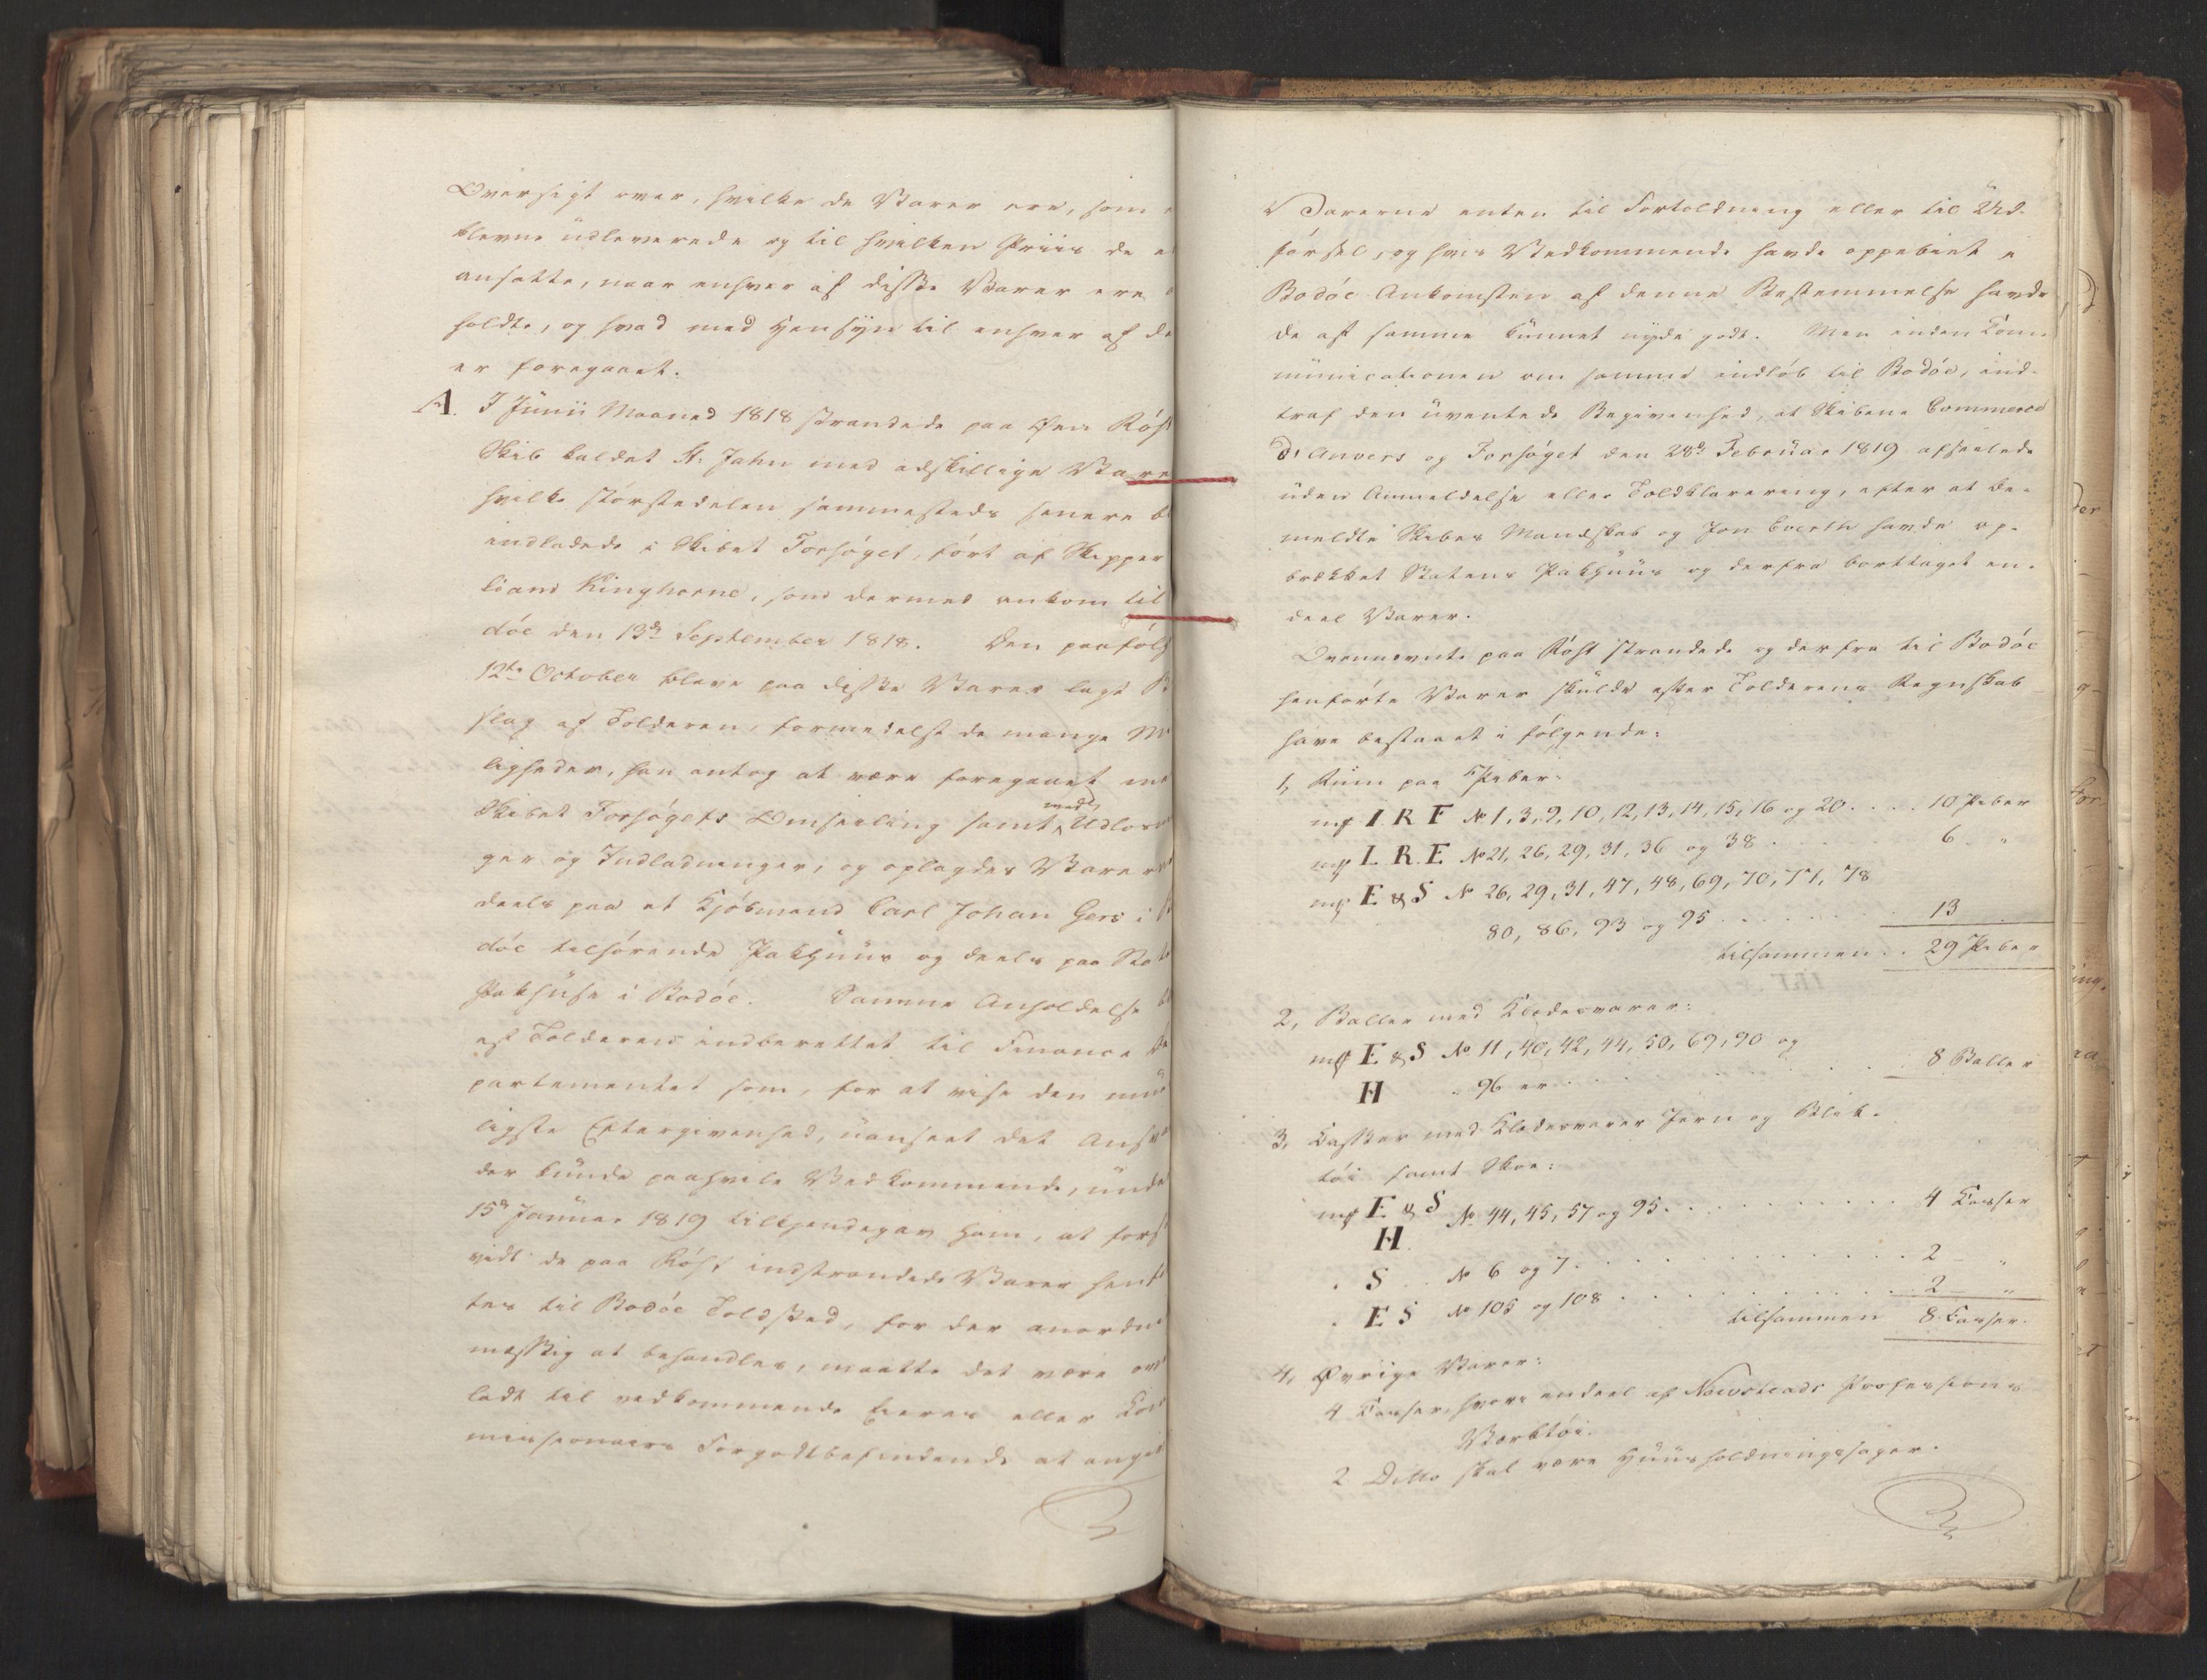 Oversigt over, hvilke de Varer ere, som
blevne udleverede og til hvilken Priis de
ansatte, naar enhver af disse Varer ere
holdte, og hvad med Hensyn til enhver af de
er foregaaet.
A. I Junii Maaned 1818 strandede paa Øen Röst
Skib kaldet St. Jahn med adskillige Vare
hvilke størstedelen sammesteds senere bl
indladede i Skibet Forsøget, ført af Skipper
liam Kinghorne, som dermed ankom til
döe den 13de September 1818. Den paafølg
12te October bleve paa disse Varer lagt B
slag af Tolderen, formedelst de mange M
ligheder, han antog at være foregaaet me
Skibet Forsøgets Omseiling samt med Udlosn
ger og Indladninger, og oplagdes Varerne
deels paa et Kjøbmand Carl Johan Gers i
döe tilhørende Pakhuus og deels paa Sta
Pakhuse i Bodöe. Samme Anholdelse bl
af Tolderen indberettet til Finance De
partementet som, for at vise den mue
ligste Eftergivenhed, uanseet det Ansva
der kunde paahvile Vedkommende, unde
15de Januar 1819 tilkjendegav ham, at fors
vidt de paa Röst indstrandede Varer henfø
tes til Bodöe Toldsted, for der anordn
mæssig at behandles, maatte det være ove
ladt til vedkommende Eieres eller Com
missionairs Forgodtbefindende at angiv
Varerne enten til Fortoldning eller til Ud-
førsel, og hvis Vedkommende havde oppebiet i
Bodöe Ankomsten af denne Bestemmelse havde
de af samme kunnet nyde godt. Men inden Com-
municationen om samme indløb til Bodöe, ind-
traf den uventede Begivenhed, at Skibene Commerce
d'Anvers og Forsøget den 28de Februar 1819 afseilede
uden Anmeldelse eller Toldklarering, efter at be-
meldte Skibes Mandskab og Jon Everth havde op-
brækket Statens Pakhuus og derfra borttaget en-
deel Varer.
Ovennævnte paa Röst strandede og derfra til Bodöe
henførte Varer skulde efter Tolderens Regnskab
have bestaaet i følgende:
1, Rum paa Piber:
mk I. R F No 1, 3, 9, 10, 12, 13, 14, 15, 16 og 20 .... 10 Piber
mk I. R. F. No 21, 26, 29, 31, 36 og 38 .... 6 "
mk E & S No 26, 29, 31, 47, 48, 69, 70, 77, 78
80, 86, 93 og 95 ...... 13
tilsammen .. 29 Piber
2, Baller med Klædesvarer:
mk E & S No 11, 40, 42, 44, 50, 69, 90 og
H " 96 er .......... 8 Baller
3, Kasser med Klædesvarer Jern og Blik-
tøi samt Skoe:
mk E & S No 44, 45, 57 og 95 .......... 4 Kasser
H.
" S .. No 6 og 7 ............ 2 "
" E S No 105 og 108 ........... 2 "
tilsammen 8 Kasser.
4, Øvrige Varer:
4 Kasser, hvori endeel af Newsteads Professions
Værktøi.
2 Ditto skal være Huusholdningssager.